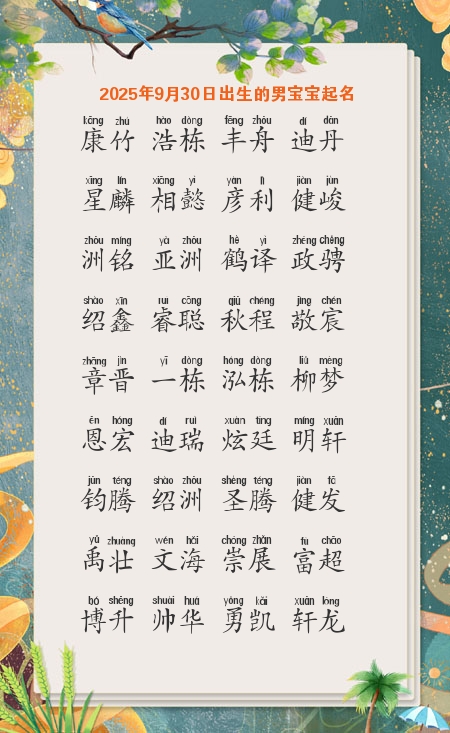 2025年9月30日出生的男宝宝起名
kāng zhú hào dòng fēng zhōu dí dān
康竹 浩栋 丰舟 迪丹
xīng lín xiāng yì yàn lì jiàn jùn
星麟 相懿 彦利 健峻
zhōu míng yà zhōu hè yì zhèng chěng
洲铭 亚洲 鹤译 政骋
shào xīn ruì cōng qiū chéng jìng chén
绍鑫 睿聪 秋程 敬宸
zhāng jìn yī dòng hóng dòng liǔ mèng
章晋 一栋 泓栋 柳梦
ēn hóng dí ruì xuàn tíng míng xuān
恩宏 迪瑞 炫廷 明轩
jūn téng shào zhōu shèng téng jiàn fā
钧腾 绍洲 圣腾 健发
yǔ zhuàng wén hǎi chóng zhǎn fù chāo
禹壮 文海 崇展 富超
bó shēng shuài huá yǒng kǎi xuān lóng
博升 帅华 勇凯 轩龙